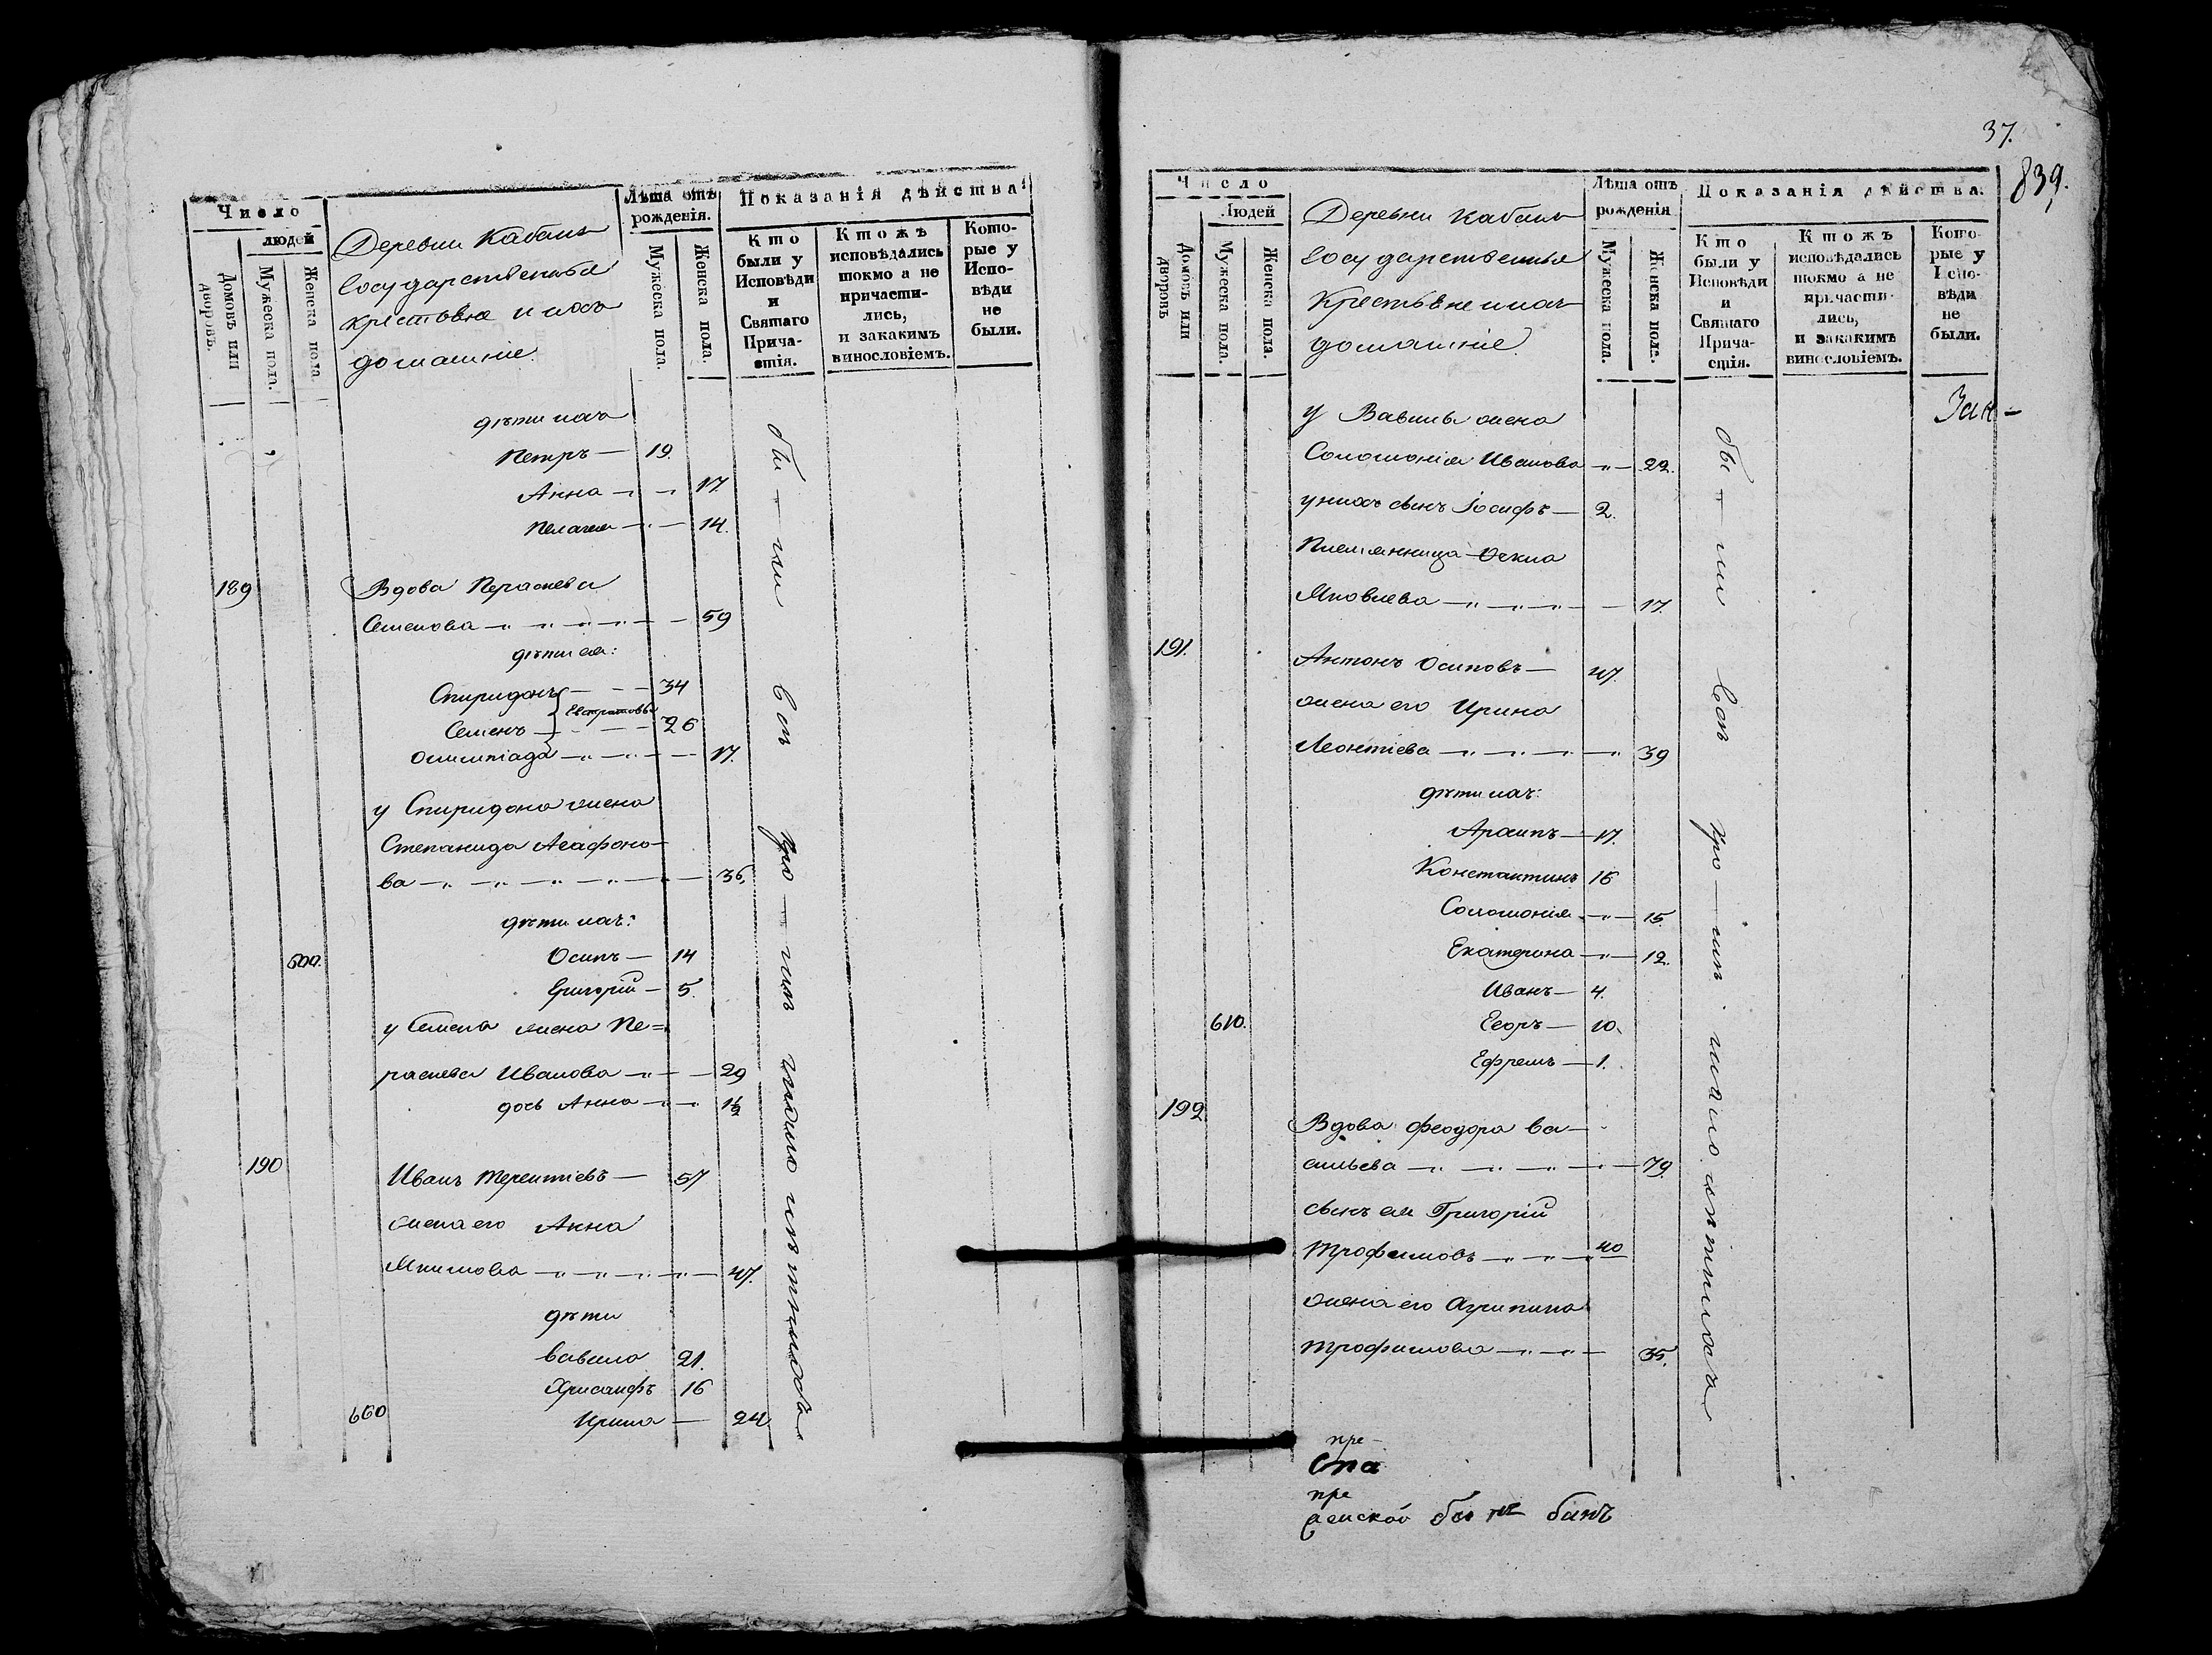 Число
людей
Домовъ или дворовъ.
Мужеска пола.
Женска пола.
Деревни Кабанъ
Государственныя
крестьяне и ихъ
домашніе.
Лѣта отъ рожденія.
Мужеска пола.
Женска пола.
Показанія дѣйства:
Кто были у Исповѣди и Святаго Причастія.
Ктожъ исповѣдались токмо а не причастились, и закакимъ винословіемъ.
Которые у Исповѣди не были.
дѣти ихъ
Петръ — 19.
Анна — „ — „ 17.
Пелагея — „ — 14.
189 Вдова Параскева
Семенова — „ — „ — „ — „ — 59
дѣти ея:
Спиридонъ — — — 34
Евстратовы
Семенъ — — — 26
Олимпіада — „ — „ — 17.
у Спиридона жена
Степанида Агафоно-
ва — „ — „ — „ — „ — 36.
дѣти ихъ:
600. Осипъ — 14
Григорій — 5.
у Семена жена Па=
раскева Иванова — „ — 29
дочь Анна — „ — „ 1½
190 Иванъ Терентіевъ — 57
жена его Анна
Якимова — „ — „ — „ — „ — 47.
дѣти
Вавила 21.
Хрисанфъ 16
660 Ирина — 24.
37.
839.
Число
Людей
Домовъ или дворовъ
Мужеска пола.
Женска пола.
Деревни Кабанъ
Государственныя
Крестьяне и ихъ
домашніе.
Лѣта отъ рожденія
Мужеска пола.
Женска пола.
Показанія дѣйства:
Кто были у Исповѣди и Святаго Причастія.
Ктожъ исповѣдались токмо а не причастились, и закакимъ винословіемъ.
Которые у Исповѣди не были.
у Вавилы жена
Соломонія Иванова — „ — 22.
у нихъ сынъ Іосифъ — 2.
Племянница
Яковлева — „ — „ — „ — — 17.
191. Антонъ Осиповъ — 47.
жена его Ирина
Леонтіева — „ — „ — „ — „ 39
дѣти ихъ:
Архипъ — 17.
Константинъ 16
Соломонія — „ — 15.
Екатерина — „ — 12.
Иванъ — 4.
610. Егоръ — 10.
Ефремъ — 1.
192 Вдова Феодора Ва-
сильева — „ — „ — „ — „ — 79.
сынъ ея Григорій
Трофимовъ — „ — „ — 40
жена его Агрипина
Трофимова — „ — „ — 35.
пре-
Спа
пре